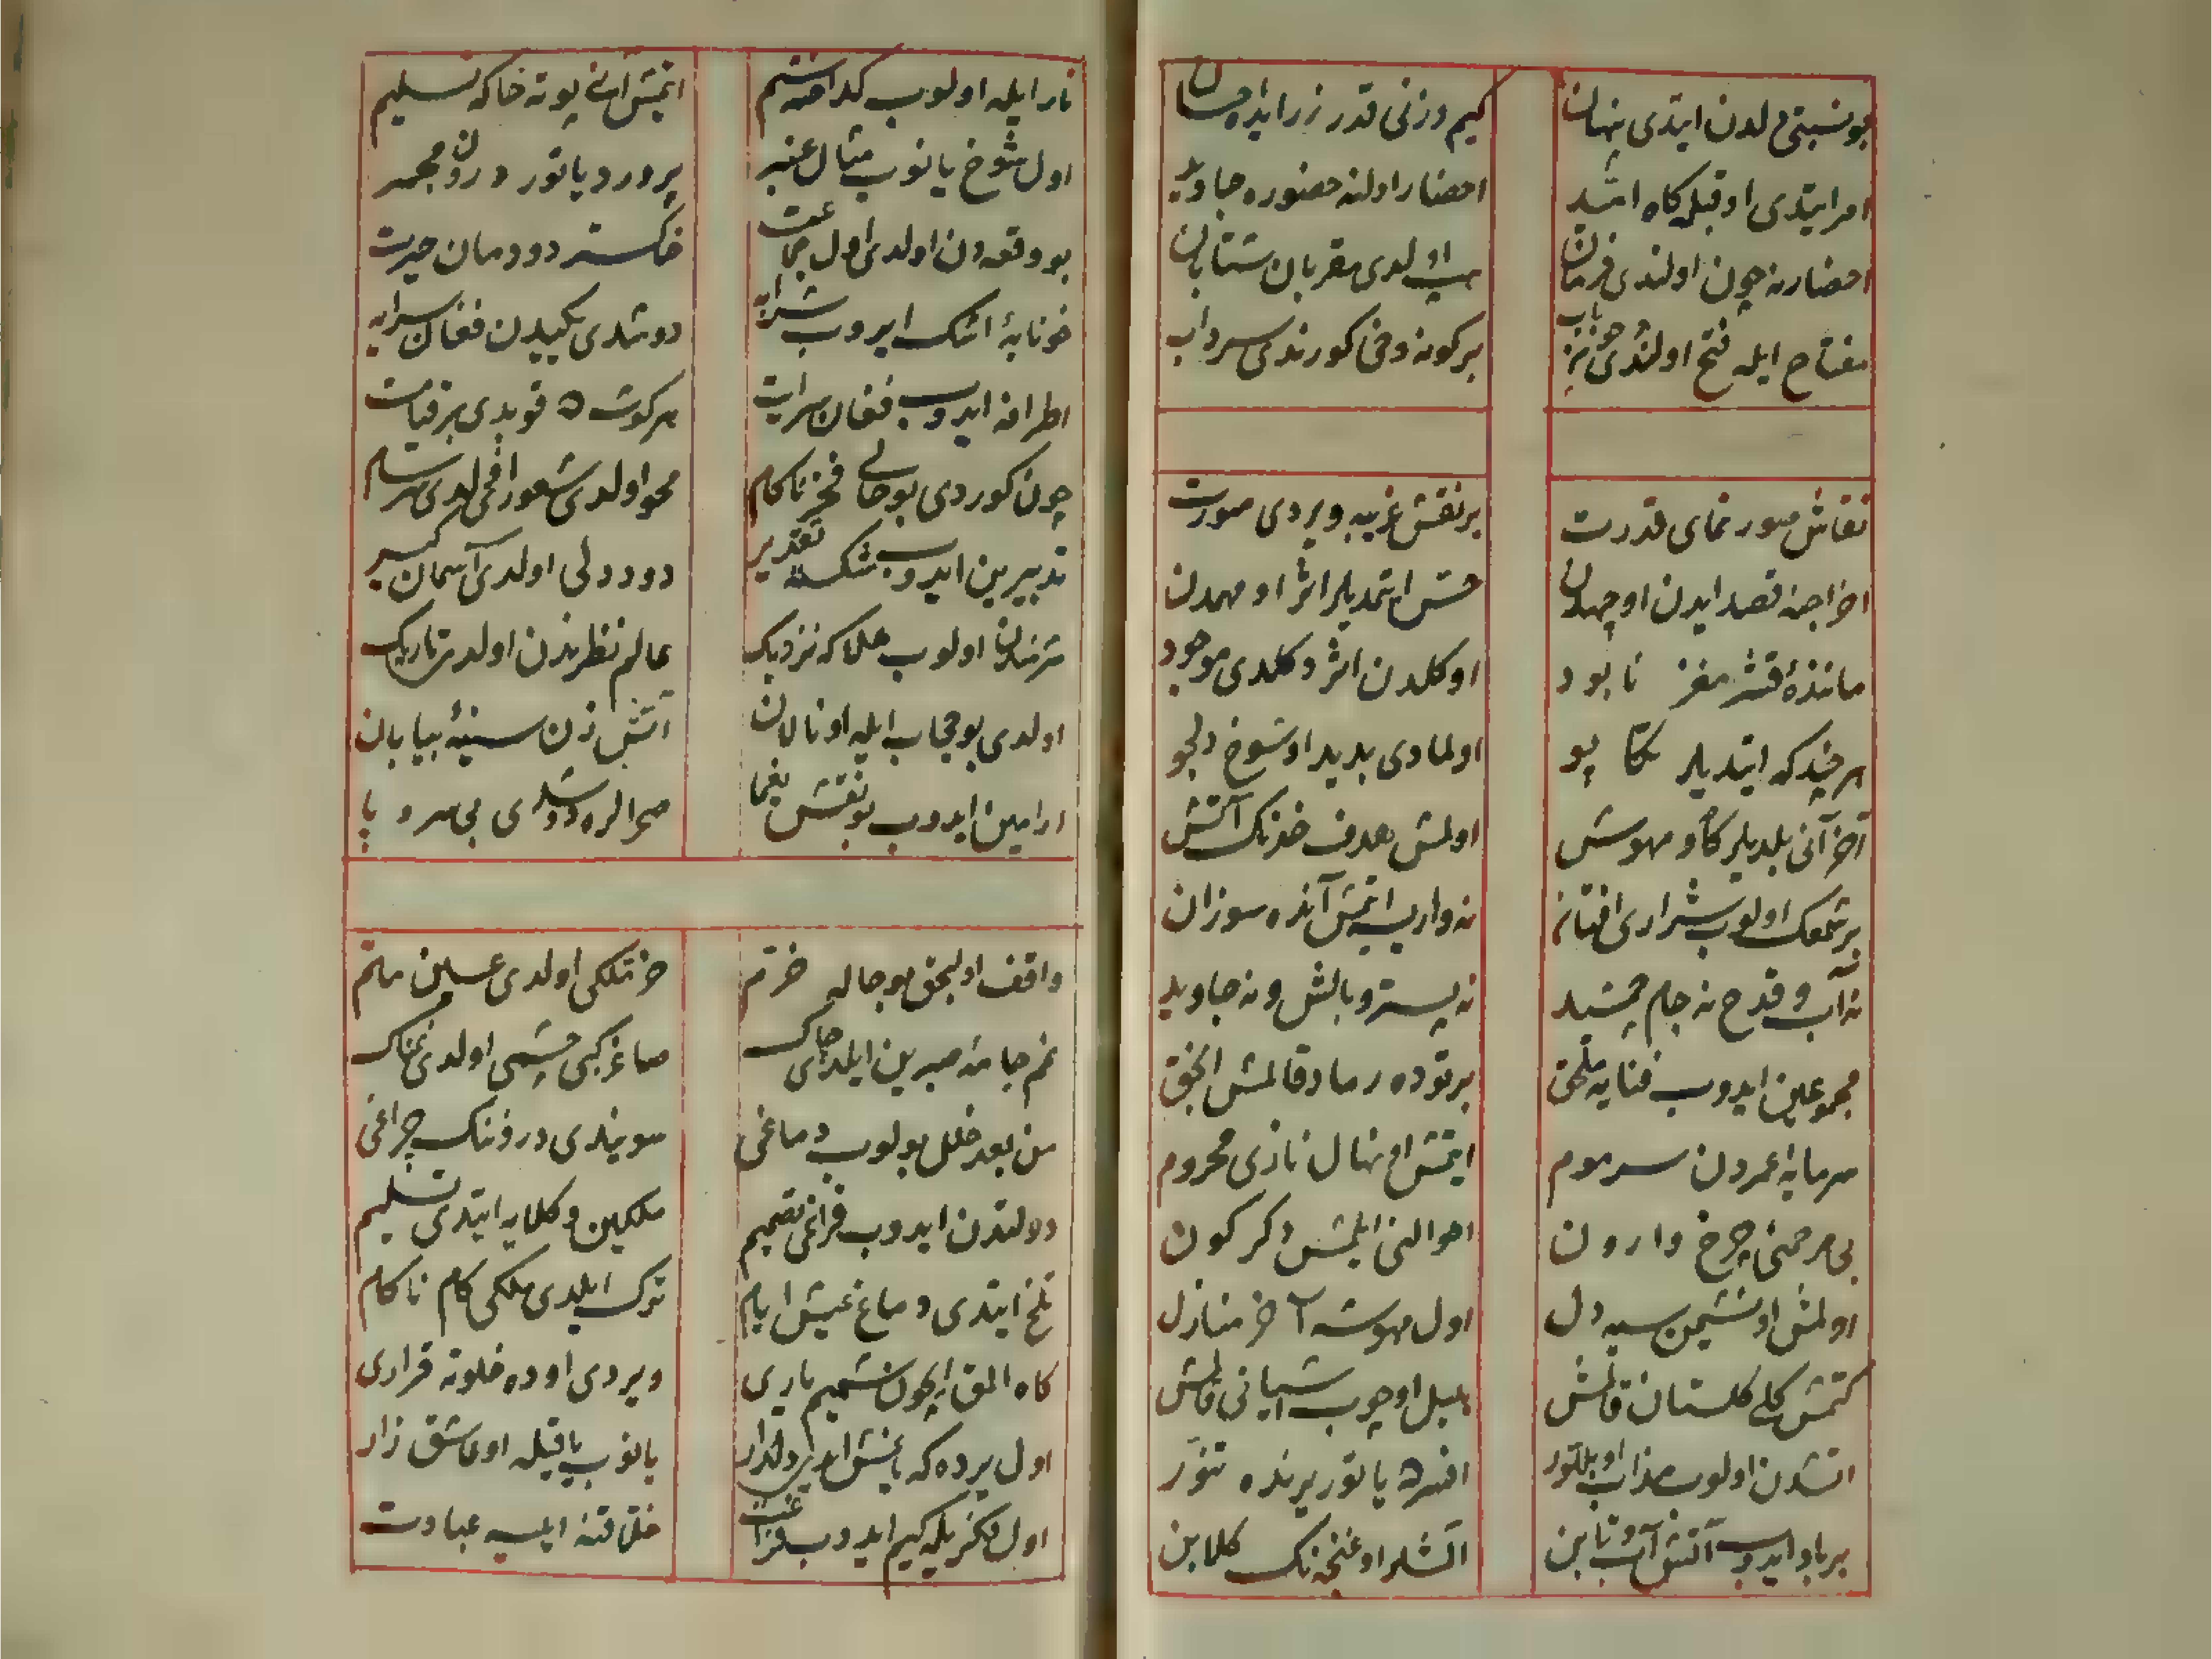 بو نسبتی دلدن ایتدی پنهان
کیم وزنی قدر زر ایده احسان
امر ایتدی او قبله کاه امید
احضار اولنه حضوره جاوید
احضارنه چون اولندی فرمان
هپ اولدی مقربان شتابان
مفتاح ایله فتح اولندی
بر کونه دخی کورندی سرداب
نقاش صور نمای قدرت
بر نقش غریبه ویردی صورت
اخراجنه قصد ایدن اوجهدن
حس ایتمدیلر اثر او مهدن
مانندهٔ قشر مغز نابود
او کلدن اثر دکلدی موجود
هر چند که ایتدیلر تکاپو
اولمادی بدید او شوخ دلجو
آخر آنی بلدیلر که او مهوش
اولمش هدف خدنک آتش
بر شمعک اولوب شراری افتان
نه واریسه ایتمش آنده سوزان
نه آب و قدح نه جام جمشید
نه بستر و بالش و نه جاوید
مجموعین ایدوب فنایه ملحق
بر توده رماد قالمش انجق
سرمایهٔ عمردن سر موم
ایتمش او نهال نازی محروم
بی مرحمتی چرخ وارون
احوالنی ایلمش دکرکون
اولمش او نشیمن سیه دل
اول مهوشه آخر منازل
کتمش کلی کلستان قالمش
بلبل اوچوب آشیانی قالمش
آتشدن اولوب عذاب
یاتور یرنده تنور
بر باد ایدوب آتش آب و تابن
آتشلر او غنچه نک کلابن
نار ایله اولوب کداخته سیم
ایتمش آنی پوته خاکه تسلیم
اول شوخ یانوب مثال عنبر
پر درد یاتور درون مجمر
بو وقعه دن اولدی اول جماعت
خاکستر دودمان حیرت
خونابهٔ اشک ایروب شرابه
دوشدی یکیدن فغان سرایه
اطرافه ایدوب فغان سرایت
هر کوشه ده قوپدی بر قیامت
چون کوردی بو حالی فخر ناکام
محو اولدی شعور
تدبیرین ایدوب شکسته تقدیر
دود دلی اولدی آسمان کیر
اولوب هلاکه نزدیک
عالم نظرندن اولدی تاریک
اولدی بو حجاب ایله او نالان
آتش زن سینهٔ بیابان
آرامین ایدوب بو نقش یغما
صحرالره دوشدی بی سر و پا
واقف اولیجق بو حاله خرم
خرملکی اولدی عین ماتم
غم جامهٔ صبرین ایلدی چاک
ساغر کبی چشمی اولدی نمناک
من بعد خلل بولوب دماغی
سویندی دروننک چراغی
دولتدن ایدوب فراغی تصمیم
ملکین وکلایه ایتدی تسلیم
تلخ ایتدی دماغ عیش ایام
ترک ایلدی ملکی کام ناکام
کاه المق ایچون شمیم یاری
ویردی اوده خلوته قراری
اول یرده که یانمش ایدی دلدار
یانوب یاقیله او عاشق زار
اول فکر ایله کیم ایدوب فراغت
خلاقنه ایلیه عبادت